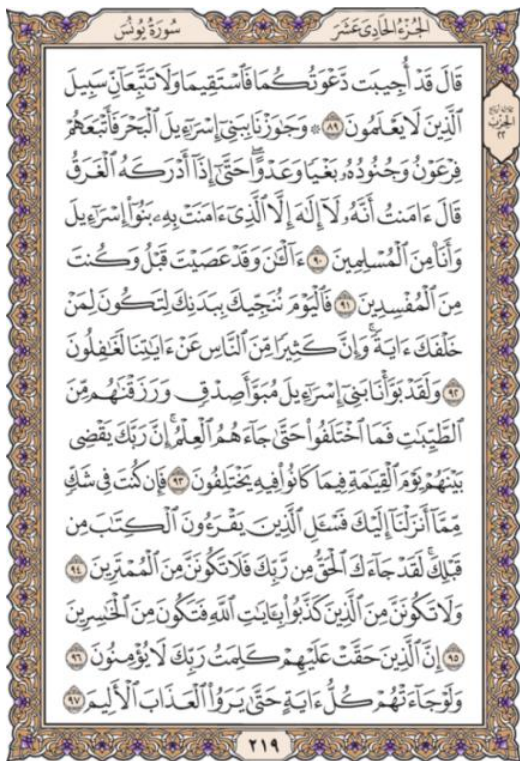 الجُزْءُ الحَادِي عَشَرَ
سُورَةُ يُونُسَ
قَالَ قَدۡ أُجِيبَت دَّعۡوَتُكُمَا فَٱسۡتَقِيمَا وَلَا تَتَّبِعَآنِّ سَبِيلَ
ٱلَّذِينَ لَا يَعۡلَمُونَ ٨٩ ۞ وَجَٰوَزۡنَا بِبَنِيٓ إِسۡرَٰٓءِيلَ ٱلۡبَحۡرَ فَأَتۡبَعَهُمۡ
فِرۡعَوۡنُ وَجُنُودُهُۥ بَغۡيٗا وَعَدۡوًاۖ حَتَّىٰٓ إِذَآ أَدۡرَكَهُ ٱلۡغَرَقُ
قَالَ ءَامَنتُ أَنَّهُۥ لَآ إِلَٰهَ إِلَّا ٱلَّذِيٓ ءَامَنَتۡ بِهِۦ بَنُوٓاْ إِسۡرَٰٓءِيلَ
وَأَنَا۠ مِنَ ٱلۡمُسۡلِمِينَ ٩٠ ءَآلۡـَٰٔنَ وَقَدۡ عَصَيۡتَ قَبۡلُ وَكُنتَ
مِنَ ٱلۡمُفۡسِدِينَ ٩١ فَٱلۡيَوۡمَ نُنَجِّيكَ بِبَدَنِكَ لِتَكُونَ لِمَنۡ
خَلۡفَكَ ءَايَةٗۚ وَإِنَّ كَثِيرٗا مِّنَ ٱلنَّاسِ عَنۡ ءَايَٰتِنَا لَغَٰفِلُونَ
٩٢ وَلَقَدۡ بَوَّأۡنَا بَنِيٓ إِسۡرَٰٓءِيلَ مُبَوَّأَ صِدۡقٖ وَرَزَقۡنَٰهُم مِّنَ
ٱلطَّيِّبَٰتِ فَمَا ٱخۡتَلَفُواْ حَتَّىٰ جَآءَهُمُ ٱلۡعِلۡمُۚ إِنَّ رَبَّكَ يَقۡضِي
بَيۡنَهُمۡ يَوۡمَ ٱلۡقِيَٰمَةِ فِيمَا كَانُواْ فِيهِ يَخۡتَلِفُونَ ٩٣ فَإِن كُنتَ فِي شَكّٖ
مِّمَّآ أَنزَلۡنَآ إِلَيۡكَ فَسۡـَٔلِ ٱلَّذِينَ يَقۡرَءُونَ ٱلۡكِتَٰبَ مِن
قَبۡلِكَۚ لَقَدۡ جَآءَكَ ٱلۡحَقُّ مِن رَّبِّكَ فَلَا تَكُونَنَّ مِنَ ٱلۡمُمۡتَرِينَ ٩٤
وَلَا تَكُونَنَّ مِنَ ٱلَّذِينَ كَذَّبُواْ بِـَٔايَٰتِ ٱللَّهِ فَتَكُونَ مِنَ ٱلۡخَٰسِرِينَ
٩٥ إِنَّ ٱلَّذِينَ حَقَّتۡ عَلَيۡهِمۡ كَلِمَتُ رَبِّكَ لَا يُؤۡمِنُونَ ٩٦
وَلَوۡ جَآءَتۡهُمۡ كُلُّ ءَايَةٍ حَتَّىٰ يَرَوُاْ ٱلۡعَذَابَ ٱلۡأَلِيمَ ٩٧
الحِزْبِ
٢٢
٢١٩